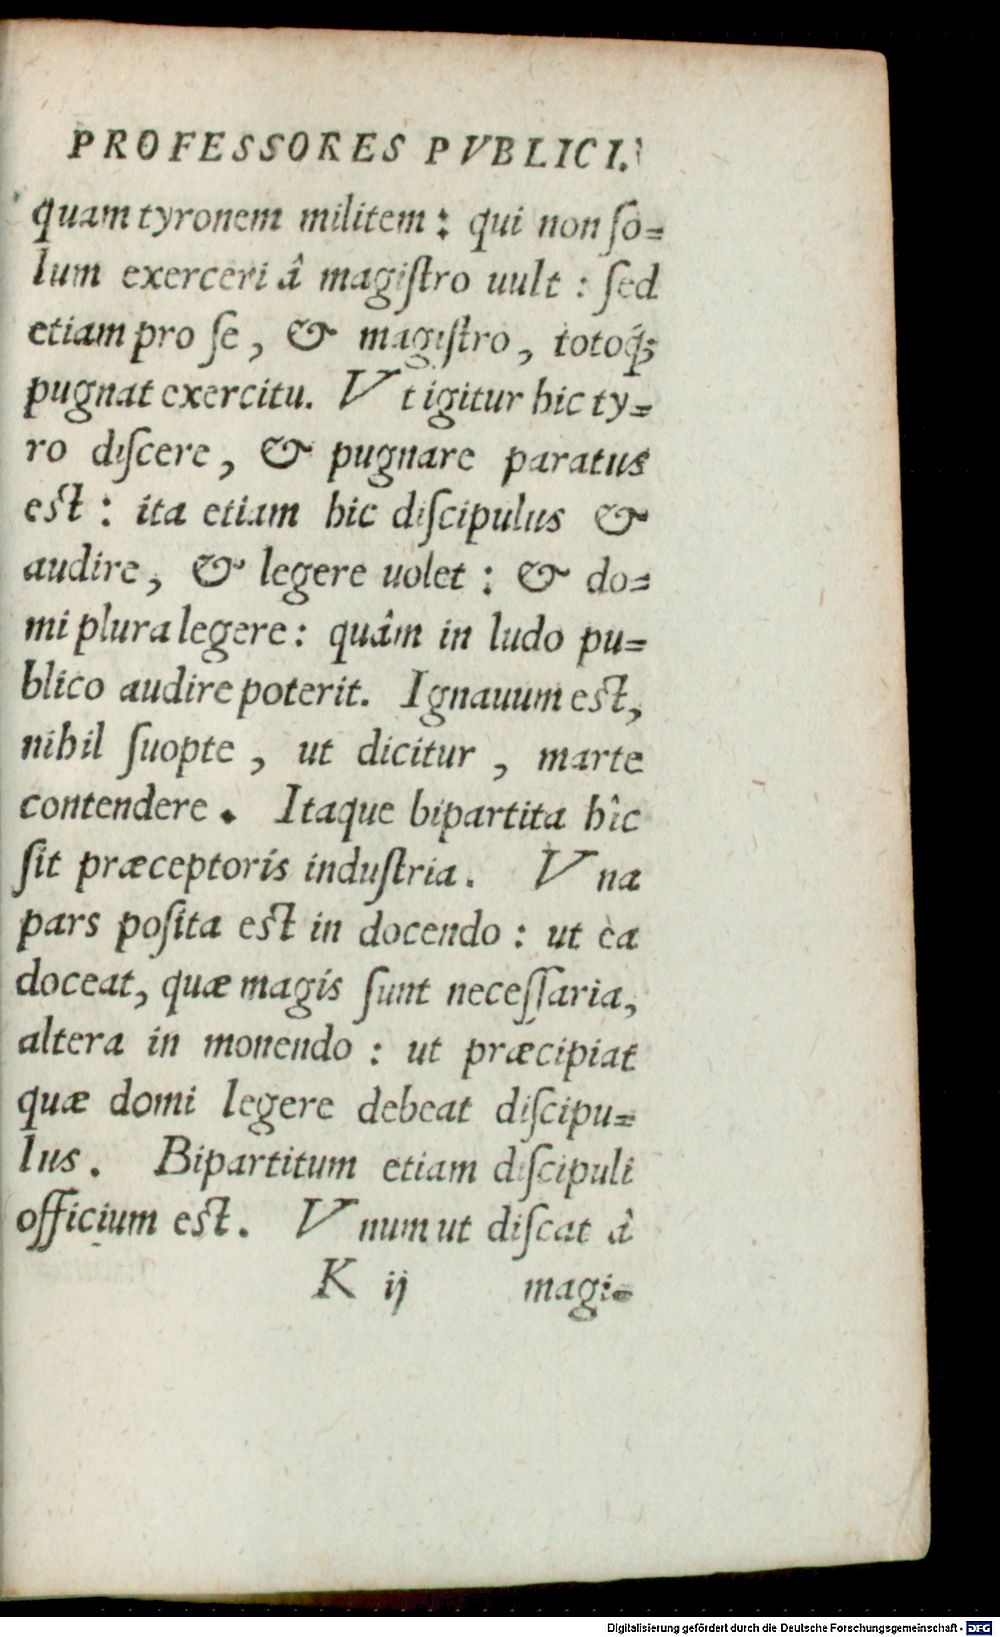 PROFESSORES PVBLICI.
quam tyronem militem: qui non ſo=
lum exerceri â magiſtro uult : ſed
etiam pro ſe, & magiſtro, totoq́;
pugnat exercitu. Vt igitur hic ty=
ro diſcere, & pugnare paratus
eſt: ita etiam hic diſcipulus &
audire, & legere uolet: & do=
mi plura legere: quâm in ludo pu=
blico audire poterit. Ignauum eſt,
nihil ſuopte, ut dicitur, marte
contendere. Itaque bipartita hîc
ſit præceptoris induſtria. Vna
pars poſita eſt in docendo: ut ea
doceat, quæ magis ſunt neceſſaria,
altera in monendo: ut præcipiat
quæ domi legere debeat diſcipu=
lus. Bipartitum etiam diſcipuli
officium eſt. Vnum ut diſcat â
K ij magi=
Digitalisierung gefördert durch die Deutsche Forschungsgemeinschaft - DFG